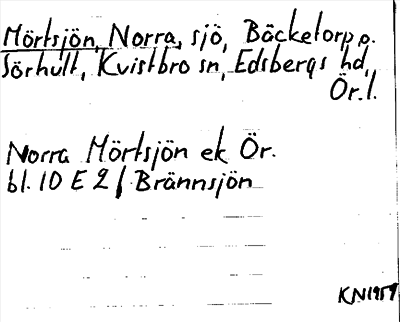 Mörtsjön, Norra, sjö, Bäcketorp o.
Sörhult, Kvistbro sn, Edsbergs hd,
Ör. l.
Norra Mörtsjön ek Ör.
bl. 10 E 2 f Brännsjön
KN 1959